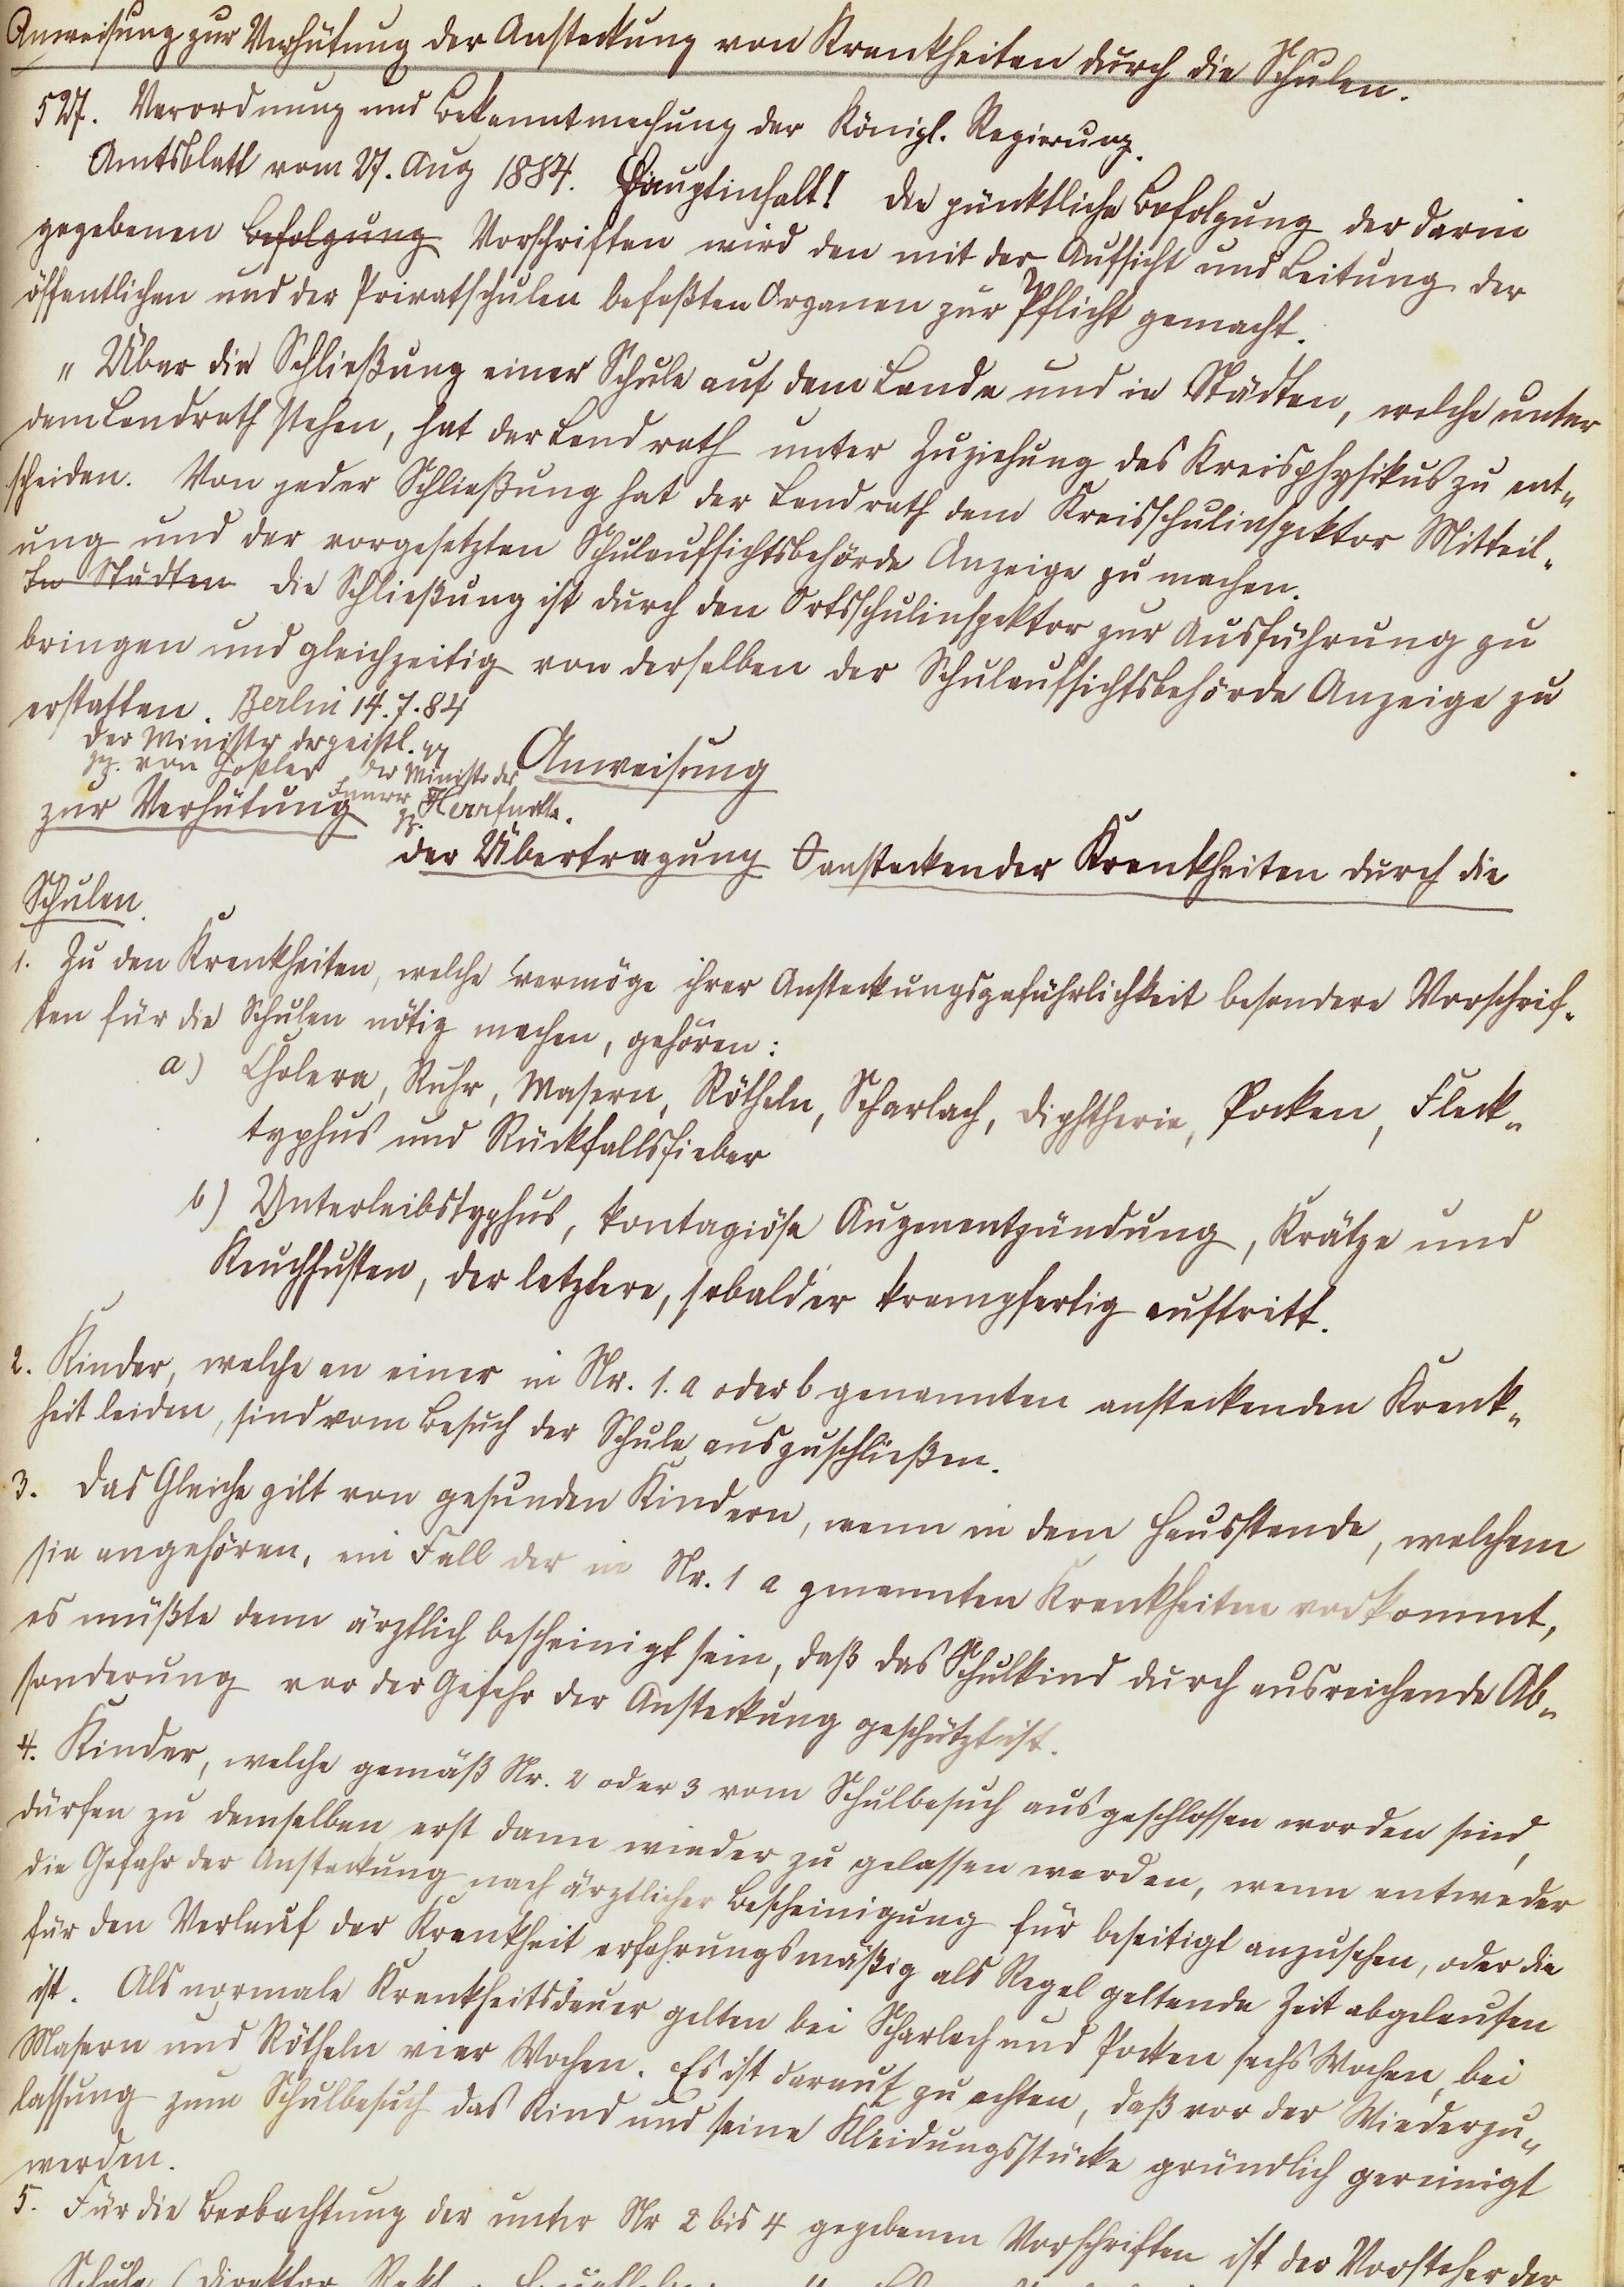 Anweisung zur Verhütung der Ansteckung von Krankheiten durch die Schulen.
527. Verordnung und Bekanntmachung der Königl. Regierung.
Amtsblatt vom 27. Aug 1884. Hauptinhalt! Die pünktliche Befolgung der darin
gegebenen Befolgung Vorschriften wird den mit der Aufsicht und Leitung der
öffentlichen und der Privatschulen befaßten Organen zur Pflicht gemacht.
" Über die Schließung einer Schule auf dem Lande und in Städten, welche unter
dem Landrath stehen, hat der Landrath unter Zuziehung des Kreisphysikus zu ent-
scheiden. Von jeder Schließung hat der Landrath dem Kreisschulinspektor Mitteil-
ung und der vorgesetzten Schulaufsichtsbehörde Anzeige zu machen.
In Städten Die Schließung ist durch den Ortsschulinspektor zur Ausführung zu
bringen und gleichzeitig von derselben der Schulaufsichtsbehörde Anzeige zu
erstatten. Berlin 14.7.84
Der Minister der geistl.
gz. von Goßler Der Minister des
Innern
gz. Herrfurth.
Anweisung
zur Verhütung
der Übertragung ansteckender Krankheiten durch die
Schulen.
1. Zu den Krankheiten, welche vermöge ihrer Ansteckungsgefährlichkeit besondere Vorschrif-
ten für die Schulen nötig machen, gehören:
a) Cholera, Ruhr, Masern, Rötheln, Scharlach, Diphtherie, Pocken, Fleck-
typhus und Rückfallsfieber
b) Unterleibstyphus, kontagiöse Augenentzündung, Krätze und
Keuchhusten, der letztere, sobald er krampfartig auftritt.
2. Kinder, welche an einer in Nr. 1. a oder b genannten ansteckenden Krank-
heit leiden, sind vom Besuch der Schule auszuschließen.
3. Das Gleiche gilt von gesunden Kindern, wenn in dem Hausstande, welchem
sie angehören, ein Fall der in Nr. 1 a genannten Krankheiten vorkommt,
es müßte denn ärztlich bescheinigt sein, daß das Schulkind durch ausreichende Ab-
sonderung vor der Gefahr der Ansteckung geschützt ist.
4. Kinder, welche gemäß Nr. 2 oder 3 vom Schulbesuch ausgeschlossen worden sind,
dürfen zu demselben erst dann wieder zu gelassen werden, wenn entweder
die Gefahr der Ansteckung nach ärztlicher Bescheinigung für beseitigt anzusehen, oder die
für den Verlauf der Krankheit erfahrungsmäßig als Regel geltende Zeit abgelaufen
ist. Als normale Krankheitsdauer gelten bei Scharlach und Pocken sechs Wochen, bei
Masern und Rötheln vier Wochen. Es ist darauf zu achten, daß vor der Wiederzu-
lassung zum Schulbesuch das Kind und seine Kleidungsstücke gründlich gereinigt
werden.
5. Für die Beobachtung der unter Nr 2 bis 4 gegebenen Vorschriften ist der Vorsteher der
Schule (Direktor